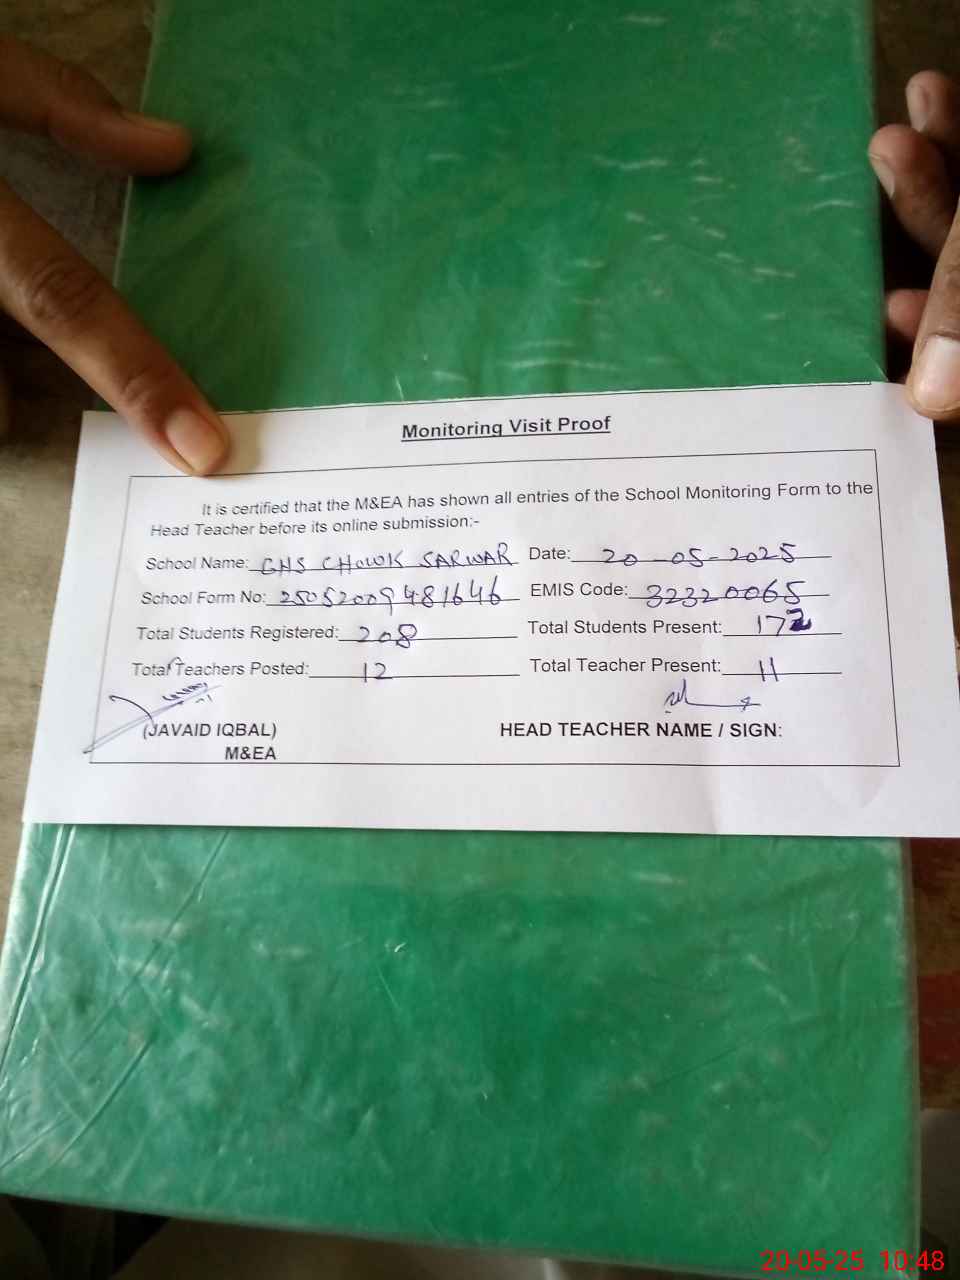 Monitoring Visit Proof
It is certified that the M&EA has shown all entries of the School Monitoring Form to the
Head Teacher before its online submission:-
School Name: GHS CHOWK SARWAR Date: 20-05-2025
School Form No: 25052009481646 EMIS Code: 32320065
Total Students Registered: 208 Total Students Present: 172
Total Teachers Posted: 12 Total Teacher Present: 11
(JAVAID IQBAL) HEAD TEACHER NAME / SIGN:
M&EA
20-05-25 10:48